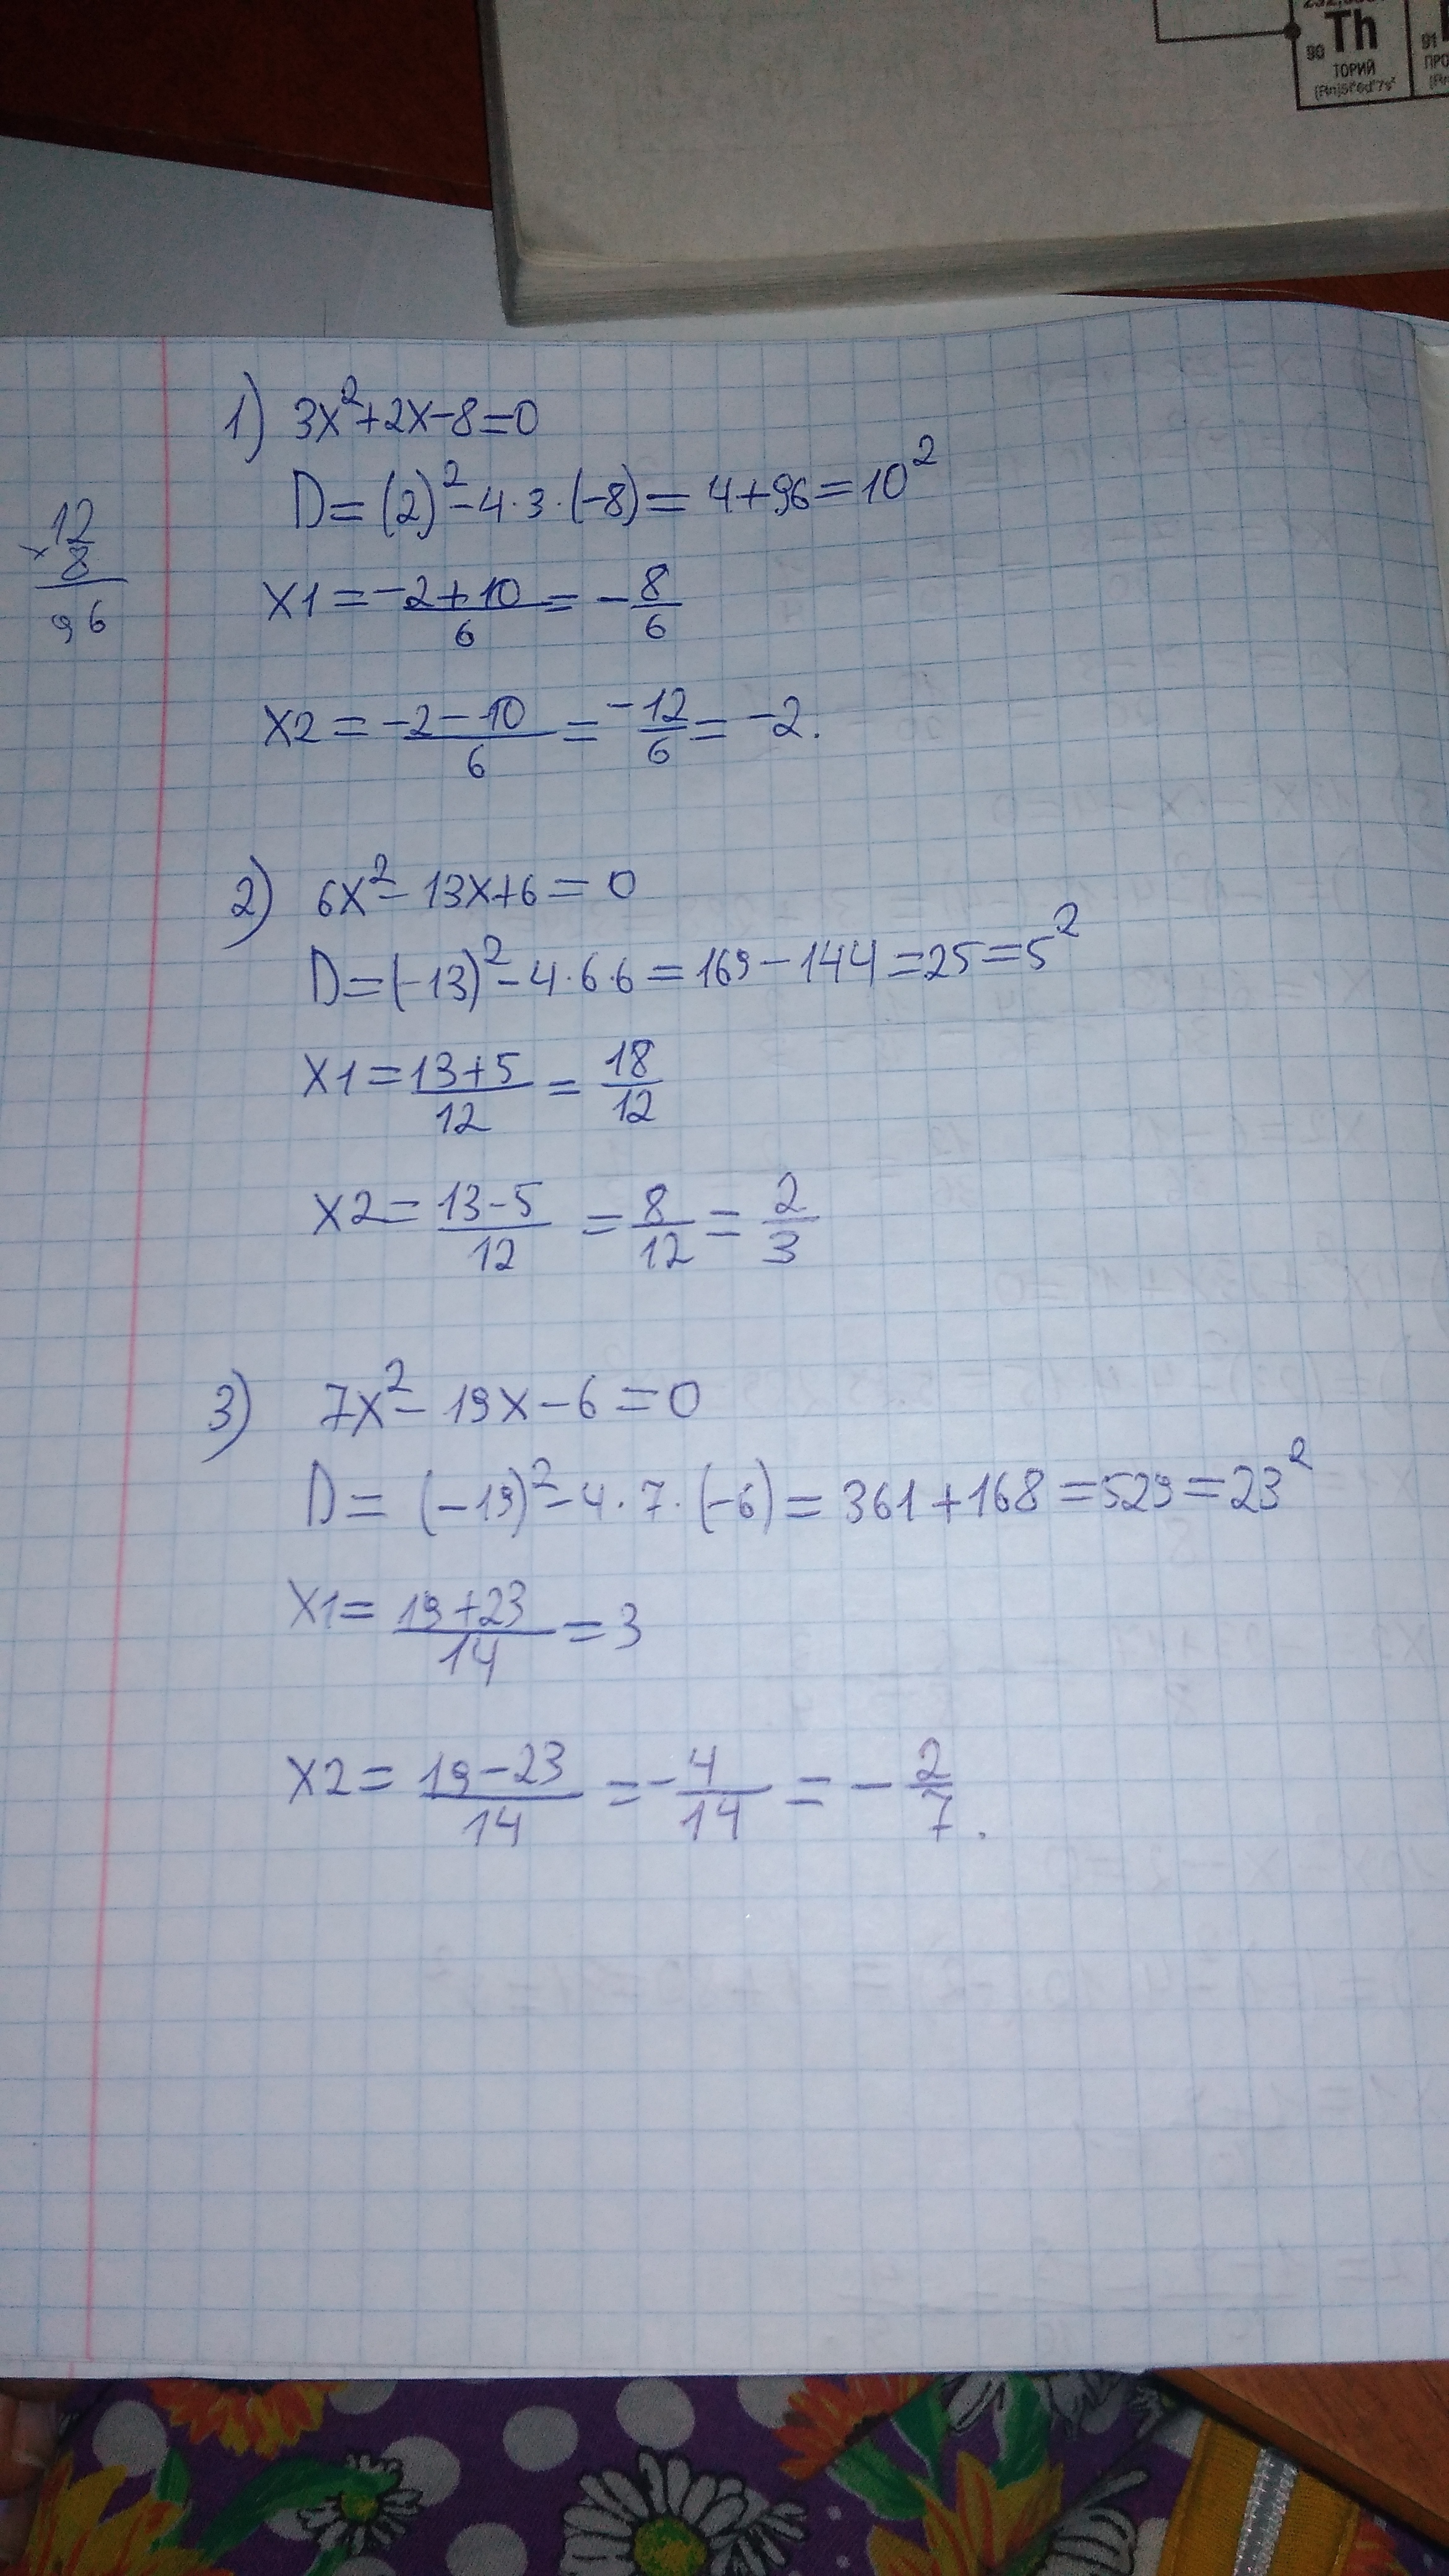 90 Th
ТОРИЙ
91
ПРО
1) 3x²+2x-8=0
D=(2)²-4·3·(-8)=4+96=10²
12
×8
96
x1=-2+10/6=-8/6
x2=-2-10/6=-12/6=-2.
2) 6x²-13x+6=0
D=(-13)²-4·6·6=169-144=25=5²
x1=13+5/12=18/12
x2=13-5/12=8/12=2/3
3) 7x²-19x-6=0
D=(-19)²-4·7·(-6)=361+168=529=23²
x1=19+23/14=3
x2=19-23/14=-4/14=-2/7.